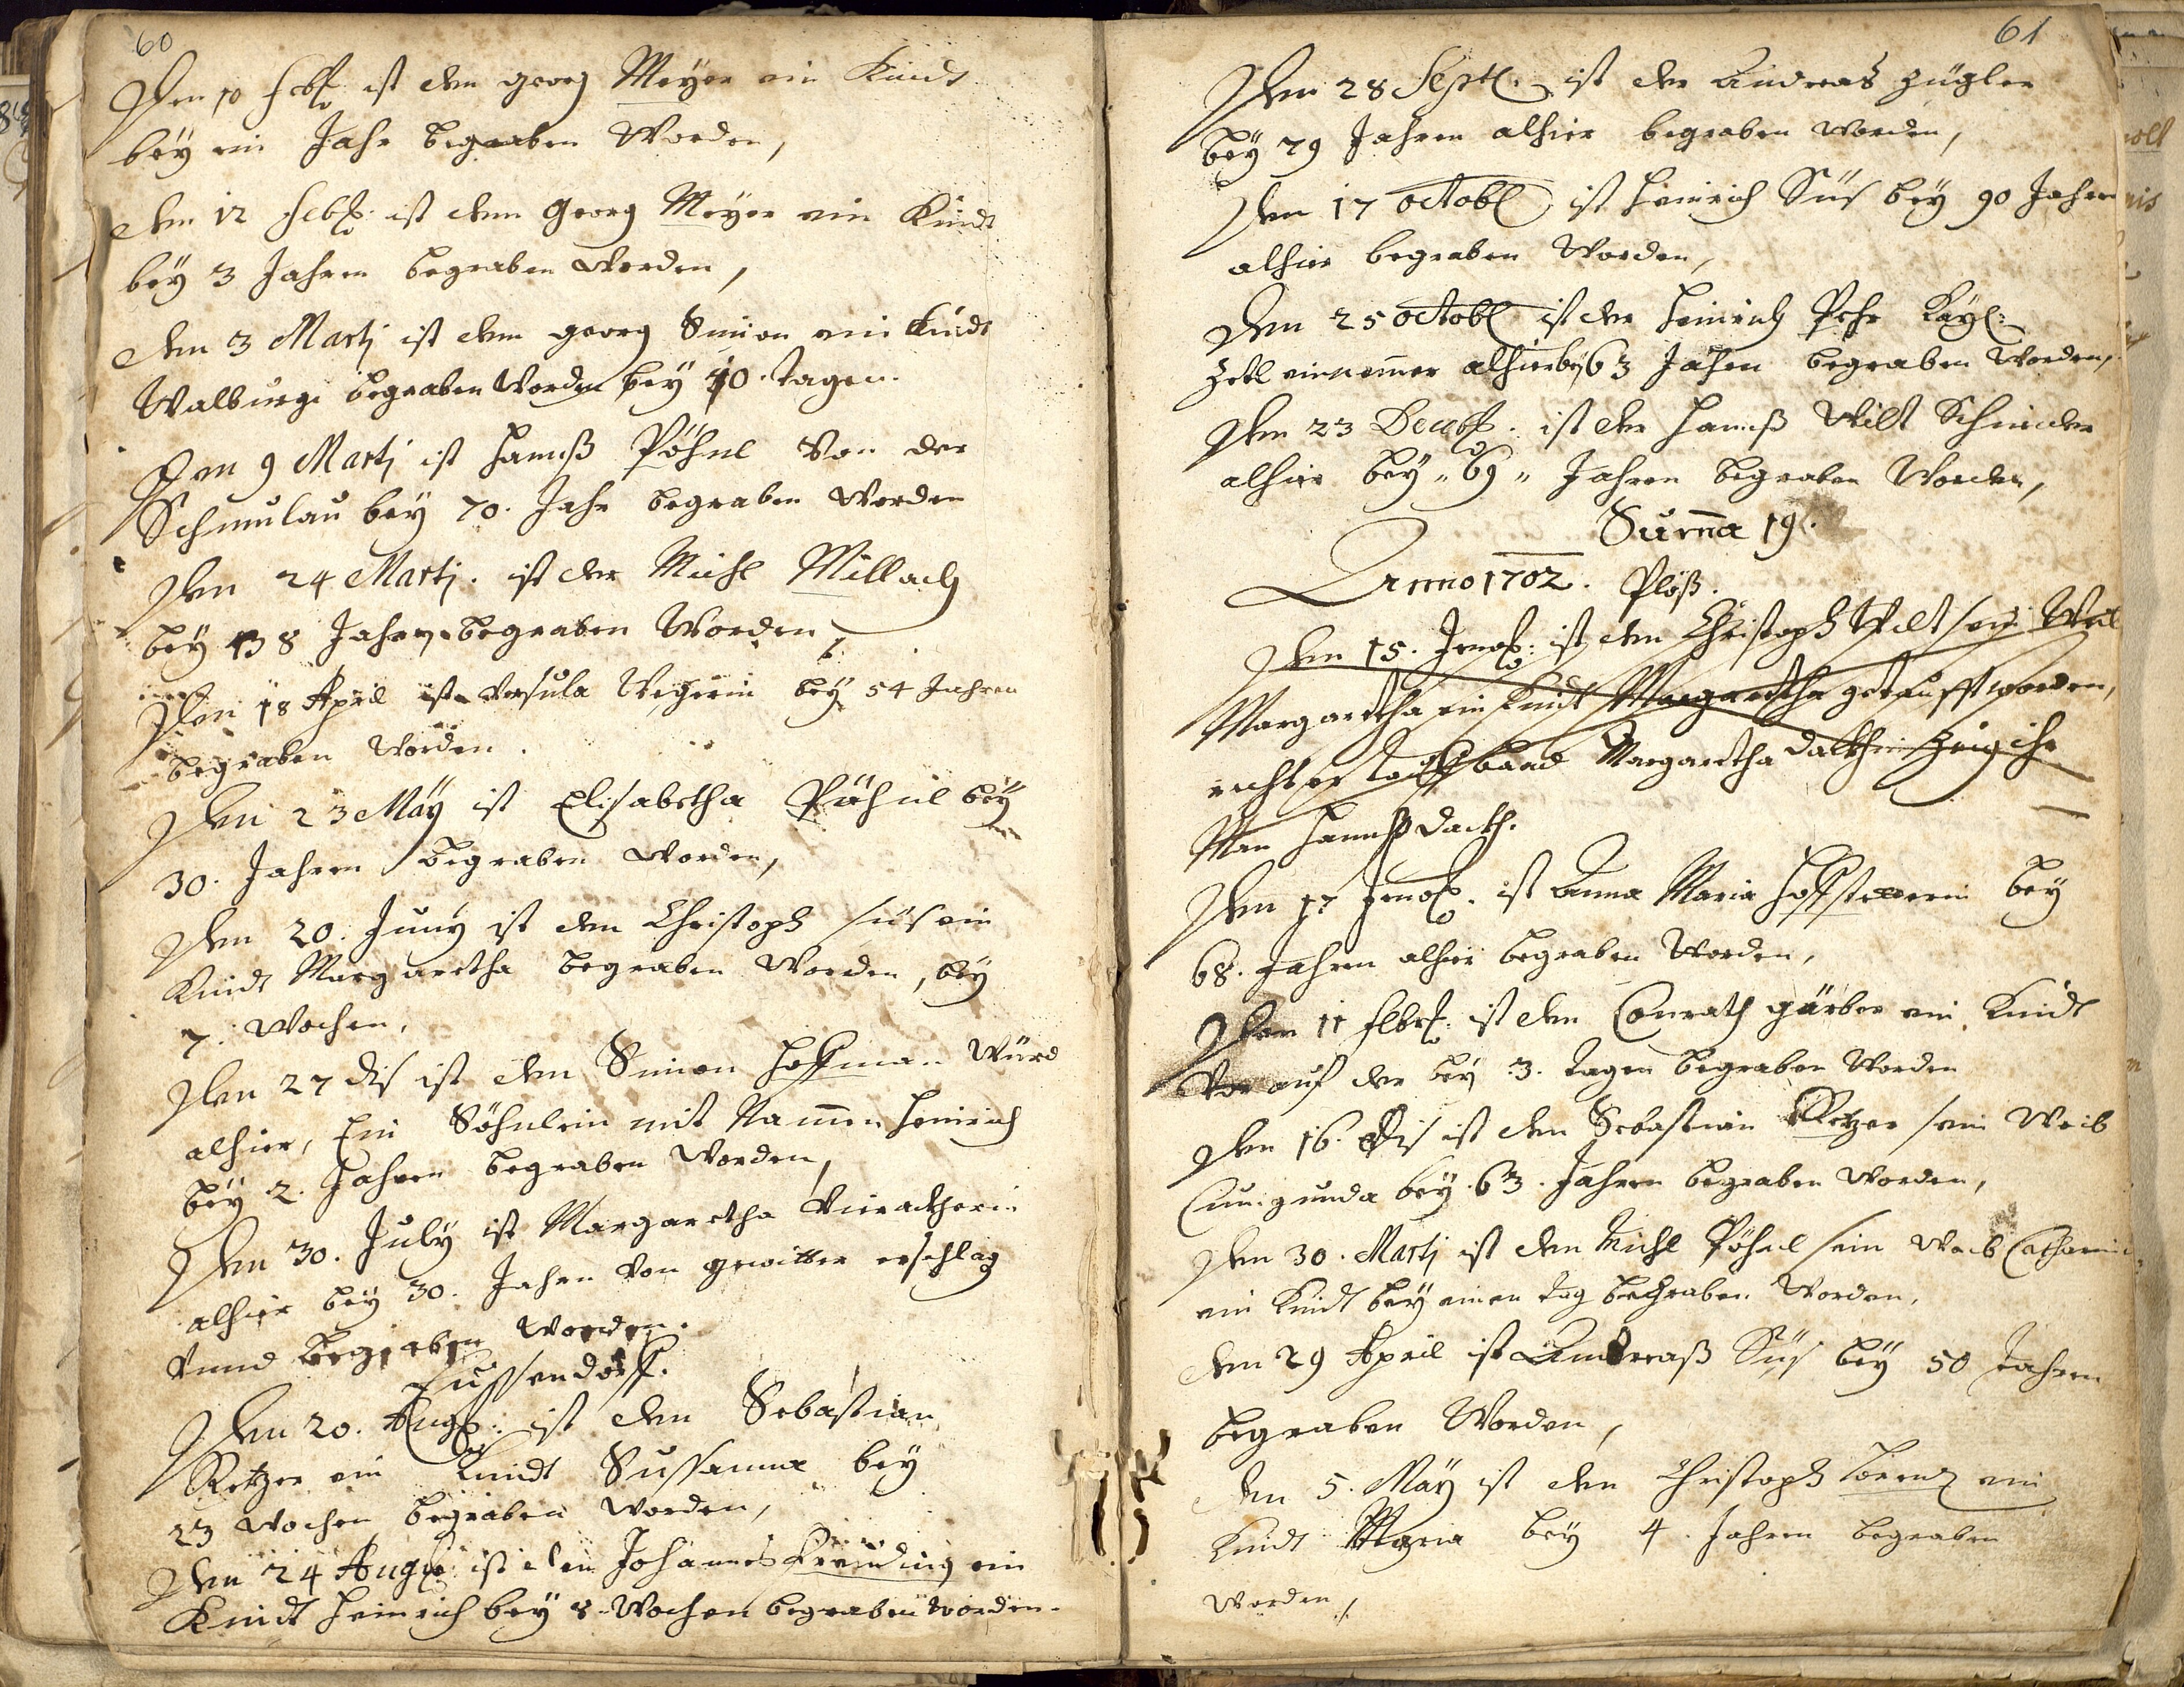 60
Den 10 Febr: ist dem georg Meyer ein Kindt
bey ein Jahr begraben Worden,
den 12 Febr: ist dem Georg Meyer ein Kindt
bey 3 Jahren begraben Worden,
den 3 Martj ist dem georg Simon ein Kindt
Walburg begraben Worden bey 10. tagen.
Den 9 Martj ist Hannß Pöhnl Von der
bey 70. Jahr begraben Worden
Den 24 Martj. ist der Michl Millach
bey 38 Jahren begraben Worden
Den 18 April ist Vrsula bey 54 Jahren
begraben Worden.
Den 23 May ist Elisabetha Pöhnl bey
30. Jahren begraben Worden,
Den 20. Juny ist dem Christoph Süs ein
Kindt Margaretha begraben Worden, bey
7. Wochen,
Den 27 dis ist dem Simon Hoffman Würd
alhier, Ein Söhnlein mit Namen Heinrich
bey 2. Jahren begraben Worden,
Den 30. July ist Margaretha
alhier bey 30. Jahren von gewitter erschlag
Vnnd begraben Worden.
Den 20. Aug: ist dem Sebastian
Retzer ein Kindt Sussanna bey
23 Wochen begraben Worden,
Den 24 Aug: ist dem Johannes ein
Kindt Heinrich bey 8. Wochen begraben worden.
61
Den 28 Septl. ist der Andreas Zügler
bey 79 Jahren alhier begraben Worden,
Den 17 octobl ist Heinrich Süs bey 90 Jahren
alhier begraben Worden,
Den 25 octobl ist der Heinrich
Zohl einnemmer alhier bey 63 Jahren begraben Worden,
Den 23 Decebr. ist der Hannß Wilt Schneider
alhier bey „69„ Jahren begraben Worden,
Suma 19.
Anno 1702. Plöß.
Den 15. Jenr: ist dem Christoph Wilt sein Weib
Margaretha ein Kindt Margaretha getaufft worden,
Margaretha ihr
Man Hannß
Den 17 Jenr. ist Anna Maria bey
68. Jahren alhier begraben Worden,
Den 11 Febr: ist dem Conrath gärber ein Kindt
bey 3. tagen begraben Worden
Den 16. dis ist dem Sebastian Retzer sein Weib
Cunigunda bey 63. Jahren begraben Worden,
Den 30. Martj ist dem Michl Pöhnl sein Weib Catharina
ein Kindt bey einen tag begraben Worden,
den 29 April ist Andreaß Süs bey 50 Jahren
begraben Worden,
den 5. May ist dem Christoph Lorenz ein
Kindt Maria bey 4. Jahren begraben
Worden,